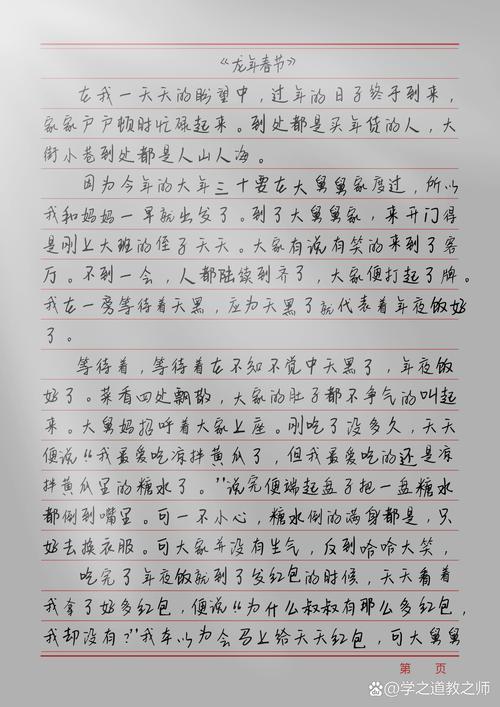 《龙年春节》
在我一天天的盼望中，过年的日子终于到来，
家家户户顿时忙碌起来。到处都是买年货的人，大
街小巷到处都是人山人海。
因为今年的大年三十要在大舅舅家度过，所以
我和妈妈一早就出发了。到了大舅舅家，来开门得
是刚上大班的侄子天天。大家有说有笑的来到了客
厅。不到一会，人都陆续到齐了，大家便打起了牌。
我在一旁等待着天黑，应为天黑了就代表着年夜饭好
了。
等待着，等待着在不知不觉中天黑了，年夜饭
好了。菜香四处飘散，大家的肚子都不争气的叫起
来。大舅妈招呼着大家上座。刚吃了没多久，天天
便说“我最爱吃凉拌黄瓜了，但我最爱吃的还是凉
拌黄瓜里的糖水了。”说完便端起盘子把一盘糖水
都倒到嘴里。可一不小心，糖水倒的满身都是，只
好去换衣服。可大家并没有生气，反到哈哈大笑，
吃完了年夜饭就到了发红包的时候，天天看着
我拿了好多红包，便说“为什么叔叔有那么多红包，
我却没有？”我本以为会马上给天天红包，可大舅舅
第 页
Bai百科@学之道教之师